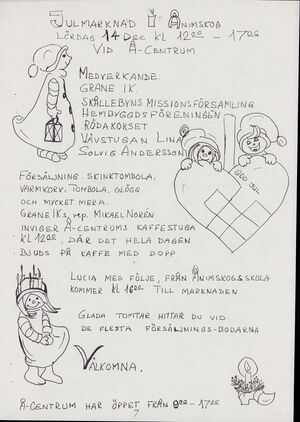 Julmarknad i Ånimskog
Lördag 14 Dec kl 12⁰⁰ - 17⁰⁰
Vid Å-Centrum
Medverkande:
Grane IK.
Skållebyns Missionsförsamling
Hembygdsföreningen
Rödakorset
Vävstugan Lina
Solvig Andersson
God Jul
Försäljning. Skinktombola,
Varmkorv, Tombola, Glögg
och mycket mera.
Grane IK:s, rep. Mikael Norén
inviger Å-centrums kaffestuga
kl 12⁰⁰, där det hela dagen
bjuds på kaffe med dopp
Lucia med följe, från Ånimskogsskola
kommer kl 16⁰⁰ till marknaden
Glada tomtar hittar du vid
de flesta försäljnings-bodarna
Välkomna.
Å-Centrum har öppet från 9⁰⁰ - 17⁰⁰
7